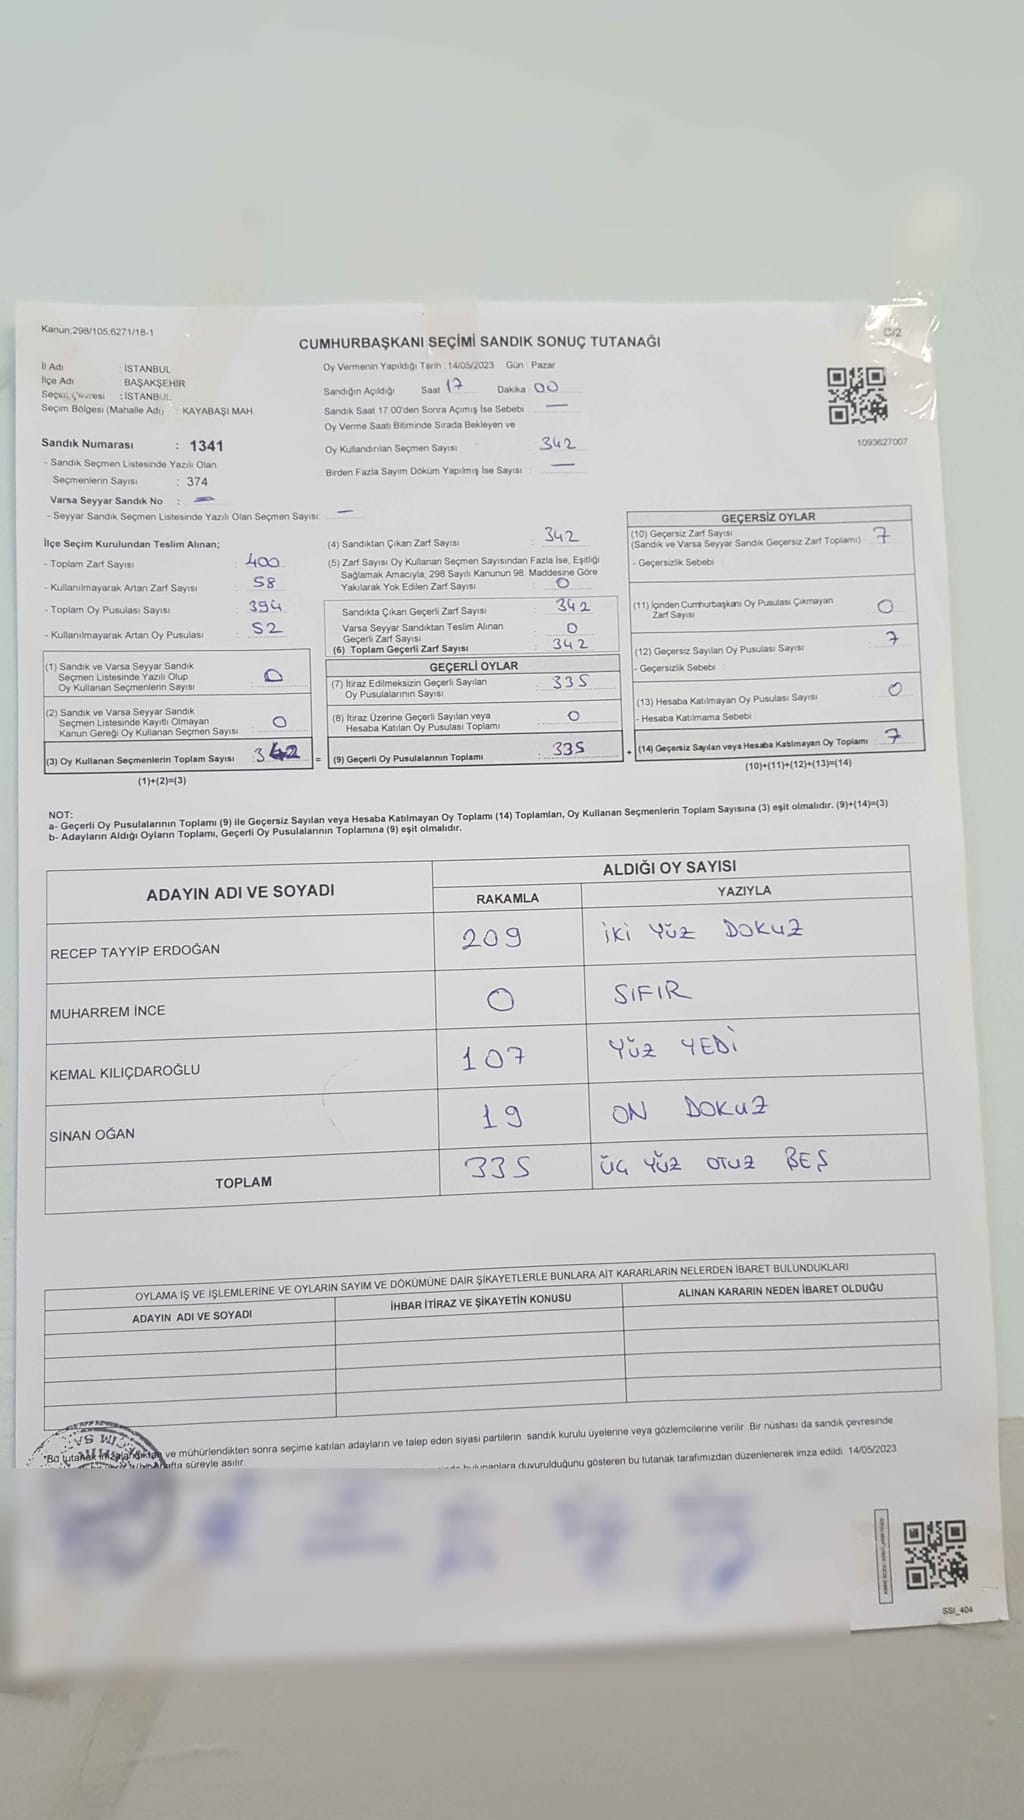 Kanun:298/105,6271/18-1
C/2
CUMHURBAŞKANI SEÇİMİ SANDIK SONUÇ TUTANAĞI
İli Adı : İSTANBUL
İlçe Adı : BAŞAKŞEHİR
Seçim Çevresi : İSTANBUL
Seçim Bölgesi (Mahalle Adı) KAYABAŞI MAH.
Oy Vermenin Yapıldığı Tarih : 14/05/2023 Gün : Pazar
Sandığın Açıldığı Saat 17 Dakika : 00
Sandık Saat 17.00'den Sonra Açımış İse Sebebi : —
Oy Verme Saati Bitiminde Sırada Bekleyen ve
Oy Kullandırılan Seçmen Sayısı : 342
Birden Fazla Sayım Döküm Yapılmış İse Sayısı : —
1093627007
Sandık Numarası : 1341
- Sandık Seçmen Listesinde Yazılı Olan
Seçmenlerin Sayısı : 374
Varsa Seyyar Sandık No : —
- Seyyar Sandık Seçmen Listesinde Yazılı Olan Seçmen Sayısı: —
İlçe Seçim Kurulundan Teslim Alınan;
- Toplam Zarf Sayısı : 400
- Kullanılmayarak Artan Zarf Sayısı : 58
- Toplam Oy Pusulası Sayısı : 394
- Kullanılmayarak Artan Oy Pusulası : 52
(1) Sandık ve Varsa Seyyar Sandık
Seçmen Listesinde Yazılı Olup
Oy Kullanan Seçmenlerin Sayısı : 0
(2) Sandık ve Varsa Seyyar Sandık
Seçmen Listesinde Kayıtlı Olmayan
Kanun Gereği Oy Kullanan Seçmen Sayısı : 0
(3) Oy Kullanan Seçmenlerin Toplam Sayısı : 342
(1)+(2)=(3)
(4) Sandıktan Çıkan Zarf Sayısı : 342
(5) Zarf Sayısı Oy Kullanan Seçmen Sayısından Fazla İse, Eşitliği
Sağlamak Amacıyla, 298 Sayılı Kanunun 98. Maddesine Göre
Yakılarak Yok Edilen Zarf Sayısı : 0
Sandıkta Çıkan Geçerli Zarf Sayısı : 342
Varsa Seyyar Sandıktan Teslim Alınan
Geçerli Zarf Sayısı : 0
(6) Toplam Geçerli Zarf Sayısı : 342
GEÇERLİ OYLAR
(7) İtiraz Edilmeksizin Geçerli Sayılan
Oy Pusulalarının Sayısı : 335
(8) İtiraz Üzerine Geçerli Sayılan veya
Hesaba Katılan Oy Pusulası Toplamı : 0
= (9) Geçerli Oy Pusulalarının Toplamı : 335
GEÇERSİZ OYLAR
(10) Geçersiz Zarf Sayısı
(Sandık ve Varsa Seyyar Sandık Geçersiz Zarf Toplamı) : 7
- Geçersizlik Sebebi :
(11) İçinden Cumhurbaşkanı Oy Pusulası Çıkmayan
Zarf Sayısı : 0
(12) Geçersiz Sayılan Oy Pusulası Sayısı : 7
- Geçersizlik Sebebi :
(13) Hesaba Katılmayan Oy Pusulası Sayısı : 0
- Hesaba Katılmama Sebebi :
+ (14) Geçersiz Sayılan veya Hesaba Katılmayan Oy Toplamı : 7
(10)+(11)+(12)+(13)=(14)
NOT:
a- Geçerli Oy Pusulalarının Toplamı (9) ile Geçersiz Sayılan veya Hesaba Katılmayan Oy Toplamı (14) Toplamları, Oy Kullanan Seçmenlerin Toplam Sayısına (3) eşit olmalıdır. (9)+(14)=(3)
b- Adayların Aldığı Oyların Toplamı, Geçerli Oy Pusulalarının Toplamına (9) eşit olmalıdır.
ADAYIN ADI VE SOYADI
ALDIĞI OY SAYISI
RAKAMLA YAZIYLA
RECEP TAYYİP ERDOĞAN 209 İKİ YÜZ DOKUZ
MUHARREM İNCE 0 SIFIR
KEMAL KILIÇDAROĞLU 107 YÜZ YEDİ
SİNAN OĞAN 19 ON DOKUZ
TOPLAM 335 ÜÇ YÜZ OTUZ BEŞ
OYLAMA İŞ VE İŞLEMLERİNE VE OYLARIN SAYIM VE DÖKÜMÜNE DAİR ŞİKAYETLERLE BUNLARA AİT KARARLARIN NELERDEN İBARET BULUNDUKLARI
ADAYIN ADI VE SOYADI İHBAR İTİRAZ VE ŞİKAYETİN KONUSU ALINAN KARARIN NEDEN İBARET OLDUĞU
*Bu tutanak imzalandıktan ve mühürlendikten sonra seçime katılan adayların ve talep eden siyasi partilerin sandık kurulu üyelerine veya gözlemcilerine verilir. Bir nüshası da sandık çevresinde
hafta süreyle asılır.
bulunanlara duyurulduğunu gösteren bu tutanak tarafımızdan düzenlenerek imza edildi. 14/05/2023
SSI_404